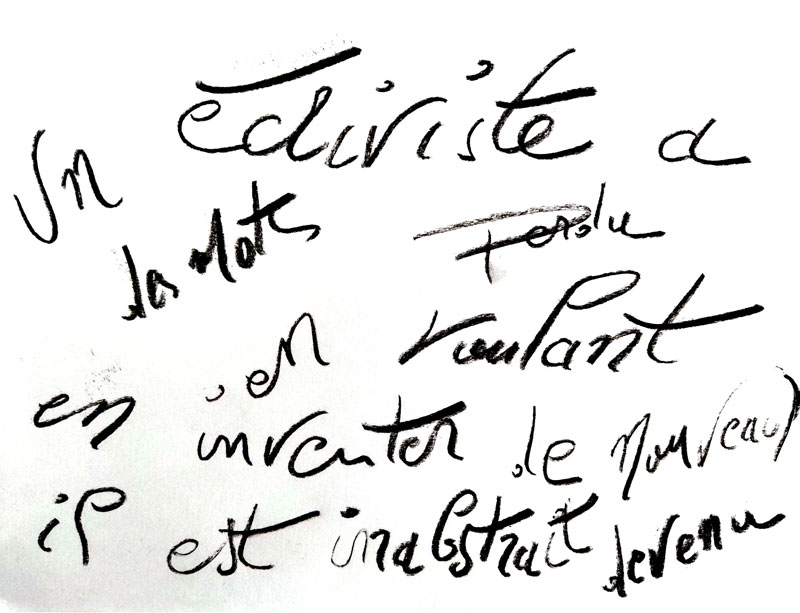 Un édiviste a
des Mots perdu
en en voulant
inventer de nouveau
il est inabstrait devenu